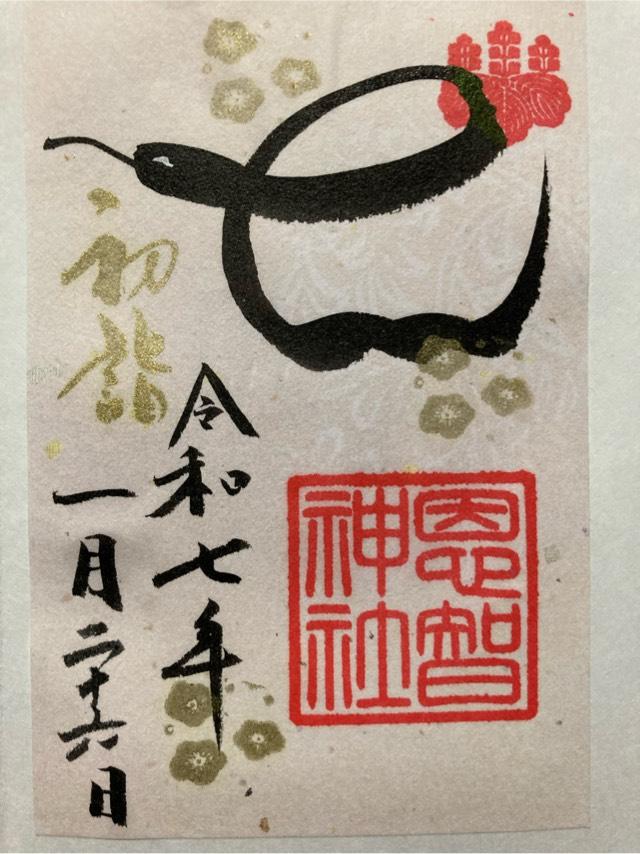 初詣
令和七年
一月二十六日
恩智
神社